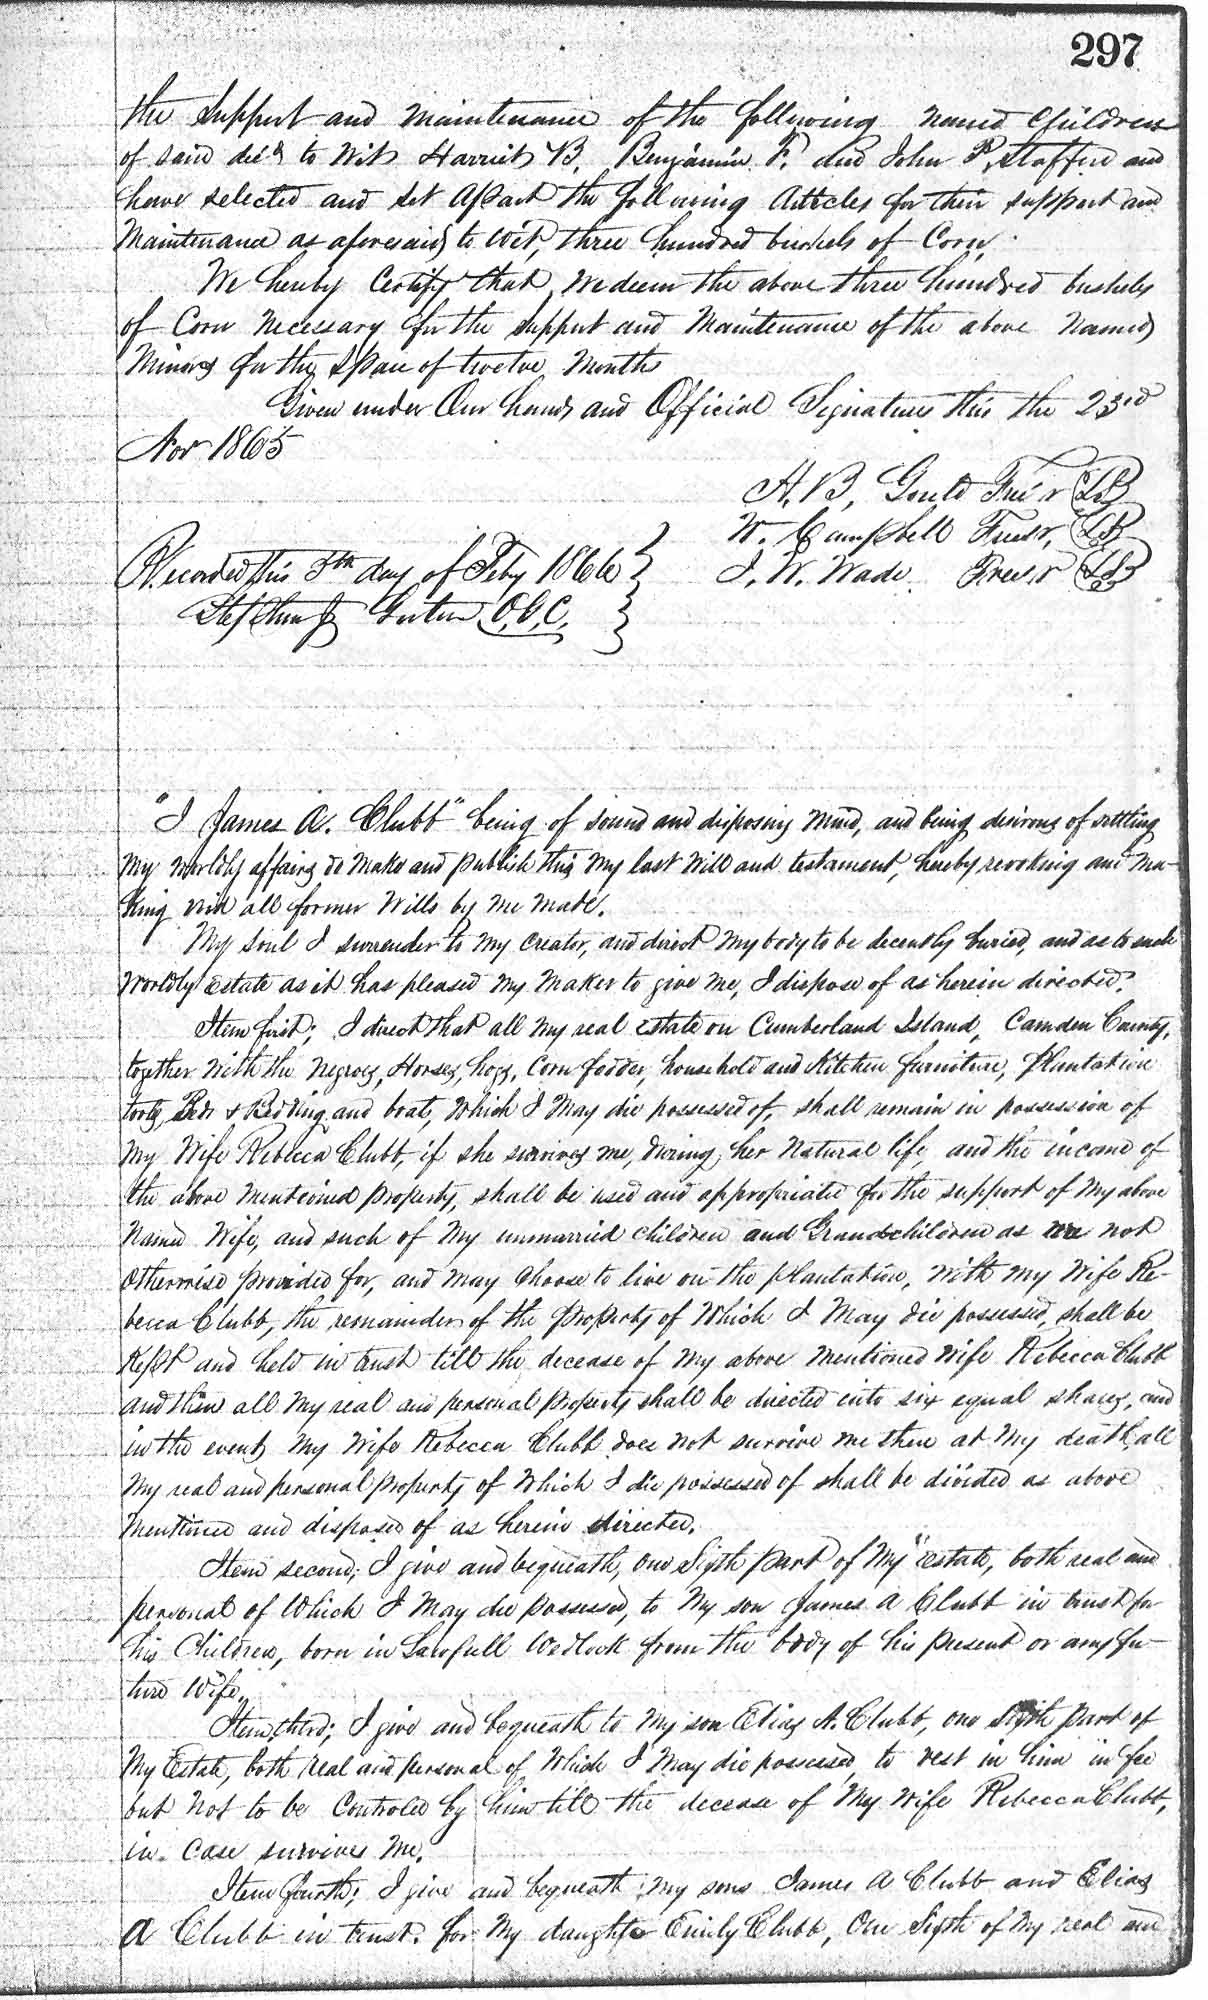 297
the support and maintenance of the following named Children
of said decd to Wit, Harriet B. Benjamin F. and John P. Stafford and
have selected and set apart the following Articles for their support and
Maintenance as aforesaid to Wit, three hundred bushels of Corn.
We hereby Certify that we deem the above three hundred bushels
of Corn necessary for the support and Maintenance of the above Named
Minors for the space of twelve Months
Given under Our hands and Official Signatures this the 23rd
Nov 1865
H. B. Gould Free'r LS
W. Campbell Freer, LS
J. W. Wade Freer LS
Recorded this 5th day of Feby 1866
O.C.C.
"I James A. Clubb" being of sound and disposing mind, and being desirous of settling
My worldly affairs do Make and publish this My last Will and testament, hereby revoking and ma-
king void all former Wills by me made.
My soul I surrender to My creator, and direct My body to be decently buried, and as to such
Worldly Estate as it has pleased My Maker to give me, I dispose of as herein directed.
Item first; I direct that all My real Estate on Cumberland Island, Camden County,
together with the Negroes, Horses, hogs, Corn fodder, household and Kitchen furniture, Plantation
tools, Beds & Bedding and boat, which I May die possessed of, shall remain in possession of
My Wife Rebecca Clubb, if she survives me, during her Natural life, and the income of
the above Mentioned property, shall be used and appropriated for the support of My above
Named Wife, and such of My unmarried children and Grandchildren as are not
otherwise provided for, and may choose to live on the plantation, with my Wife Re-
becca Clubb, the remainder of the property of Which I May die possessed, shall be
Kept and held in trust till the decease of My above Mentioned Wife Rebecca Clubb
and then all My real and personal property shall be directed into six equal shares, and
in the event My Wife Rebecca Clubb does not survive me then at My death, all
My real and personal property of Which I die possessed of shall be divided as above
Mentioned and disposed of as herein directed.
Item second; I give and bequeath, one Sixth part of My "Estate, both real and
personal of Which I May die possessed, to My son James A Clubb in trust for
his Children, born in Lawfull Wedlock from the body of his present or any fu-
ture Wife.
Item third; I give and bequeath to My son Elias A. Clubb, one Sixth part of
My Estate, both real and personal of Which I May die possessed to vest in him in fee
but Not to be Controled by him till the decease of My Wife Rebecca Clubb,
in case survives Me.
Item fourth; I give and bequeath My sons James A Clubb and Elias
A Clubb in trust for My daughter Emily Clubb, One Sixth of My real and